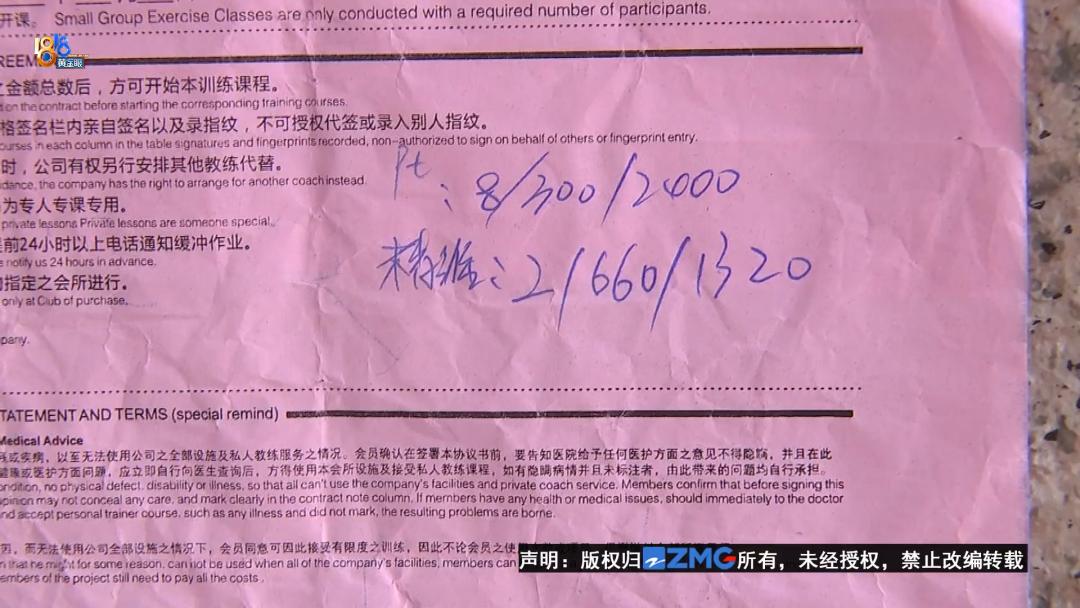 开课。 Small Group Exercise Classes are only conducted with a required number of participants.
1818
黄金眼
REEM
之金额总数后，方可开始本训练课程。
on the contract before starting the corresponding training courses.
格签名栏内亲自签名以及录指纹，不可授权代签或录入别人指纹。
ourses in each column in the table signatures and fingerprints recorded, non-authorized to sign on behalf of others or fingerprint entry.
时，公司有权另行安排其他教练代替。
dance, the company has the right to arrange for another coach instead.
为专人专课专用。
private lessons Private lessons are someone special.
前24小时以上电话通知缓冲作业。
notify us 24 hours in advance.
指定之会所进行。
only at Club of purchase.
pany.
Pt：8/300/2400
精雅：2/660/1320
TATEMENT AND TERMS (special remind)
Medical Advice
或疾病，以至无法使用公司之全部设施及私人教练服务之情况。会员确认在签署本协议书前，要告知医院给予任何医护方面之意见不得隐瞒，并且在此
健康或医护方面问题，应立即自行向医生查询后，方得使用本会所设施及接受私人教练课程，如有隐瞒病情并且未标注者，由此带来的问题均自行承担。
ondition, no physical defect, disability or illness, so that all can't use the company's facilities and private coach service. Members confirm that before signing this
opinion may not conceal any care, and mark clearly in the contract note column. If members have any health or medical issues, should immediately to the doctor
nd accept personal trainer course, such as any illness and did not mark, the resulting problems are borne.
因，而无法使用公司全部设施之情况下，会员同意可因此接受有限度之训练，因此不论会员之使
n that he might for some reason, can not be used when all of the company's facilities, members can
embers of the project still need to pay all the costs.
声明：版权归ZMG所有，未经授权，禁止改编转载